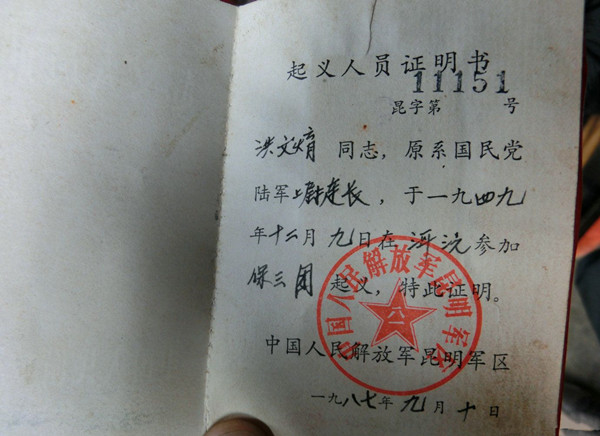 起义人员证明书
11151
昆字第 号
洪文焴 同志，原系国民党
陆军上尉连长，于一九四九
年十二月九日在洱沅参加
保三团 起义，特此证明。
中国人民解放军昆明军区
中国人民解放军昆明军区
八一
一九八七年九月十日